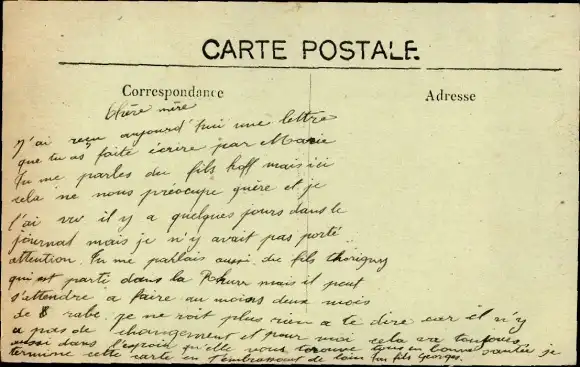 CARTE POSTALE
Correspondance
Adresse
Chère mère
J'ai reçu aujourd'hui une lettre
que tu as faite écrire par Marie
Tu me parles du fils hoff mais ici
cela ne nous préoccupe guère et je
l'ai vu il y a quelques jours dans le
journal mais je n'y avait pas porté
attention. Tu me parlais aussi du fils thorigny
qui est parti dans la Rhur mais il peut
s'attendre a faire au moins deux mois
de rabe. je ne voit plus rien a te dire car il n'y
a pas de changement et pour moi cela va toujours
aussi dans l'espoir qu'elle vous trouve tous en bonne santée je
termine cette carte en t'embrassant de loin ton fils Georges.